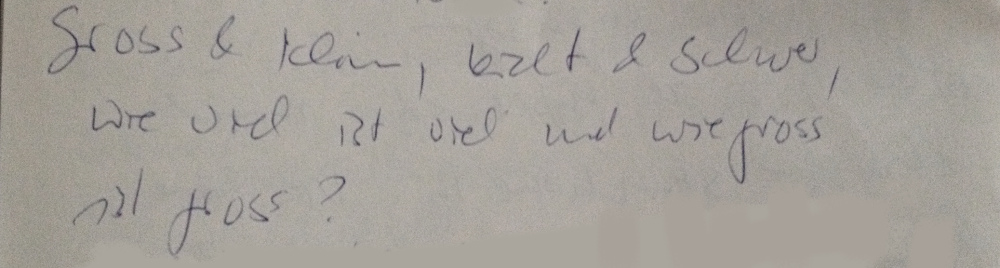 Gross & klein, kalt & schwer,
wie viel ist viel und wie gross
ist gross?